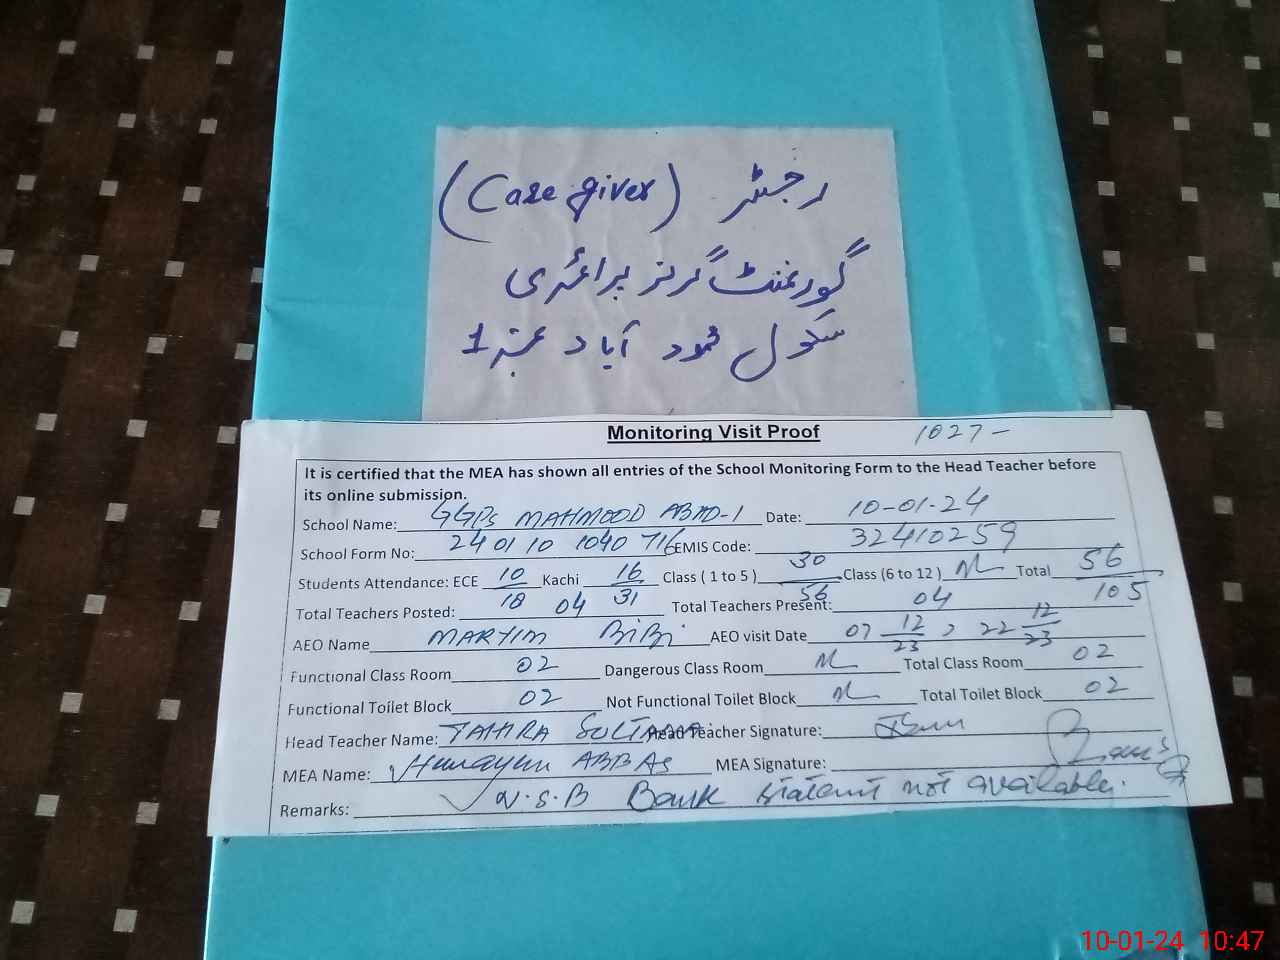 رجسٹر (Care giver)
گورنمنٹ گرلز پرائمری
سکول محمود آباد نمبر 1
Monitoring Visit Proof 1027-
It is certified that the MEA has shown all entries of the School Monitoring Form to the Head Teacher before
its online submission.
School Name: GGPS MAHMOOD ABAD-1 Date: 10-01-24
School Form No: 240110 1040 716 EMIS Code: 32410259
Students Attendance: ECE 10/18 Kachi 16/31 Class ( 1 to 5 ) 30/56 Class (6 to 12 ) NL Total 56/105
Total Teachers Posted: 04 Total Teachers Present: 04
AEO Name MARYIM BiBi AEO visit Date 07 12/23, 22 12/23
Functional Class Room 02 Dangerous Class Room NL Total Class Room 02
Functional Toilet Block 02 Not Functional Toilet Block NL Total Toilet Block 02
Head Teacher Name: TAHIRA SULTANA Head Teacher Signature:
MEA Name: Humayun ABBAS MEA Signature:
Remarks: N.S.B Bank statement not available.
10-01-24 10:47